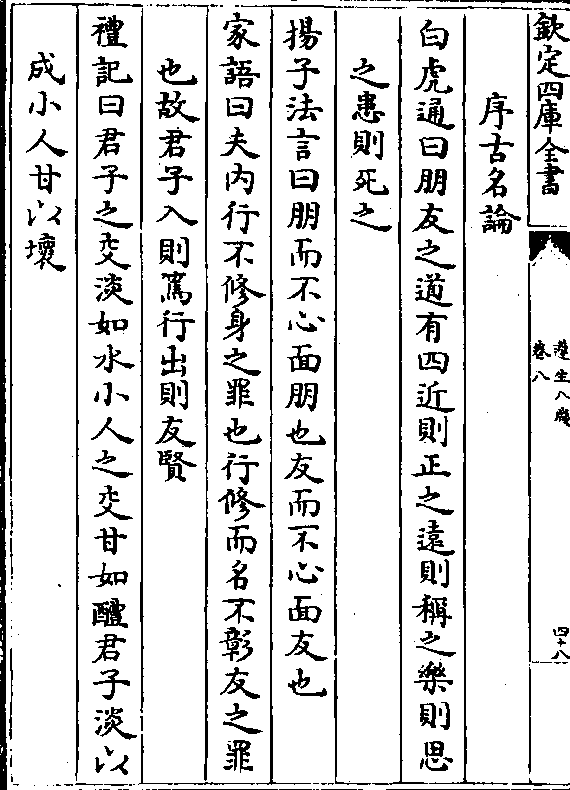 欽定四庫全書
遵生八牋
卷八
四十八
序古名論
白虎通曰朋友之道有四近則正之遠則稱之樂則思
之患則死之
揚子法言曰朋而不心面朋也友而不心面友也
家語曰夫内行不修身之罪也行修而名不彰友之罪
也故君子入則篤行出則友賢
禮記曰君子之交淡如水小人之交甘如醴君子淡以
成小人甘以壞